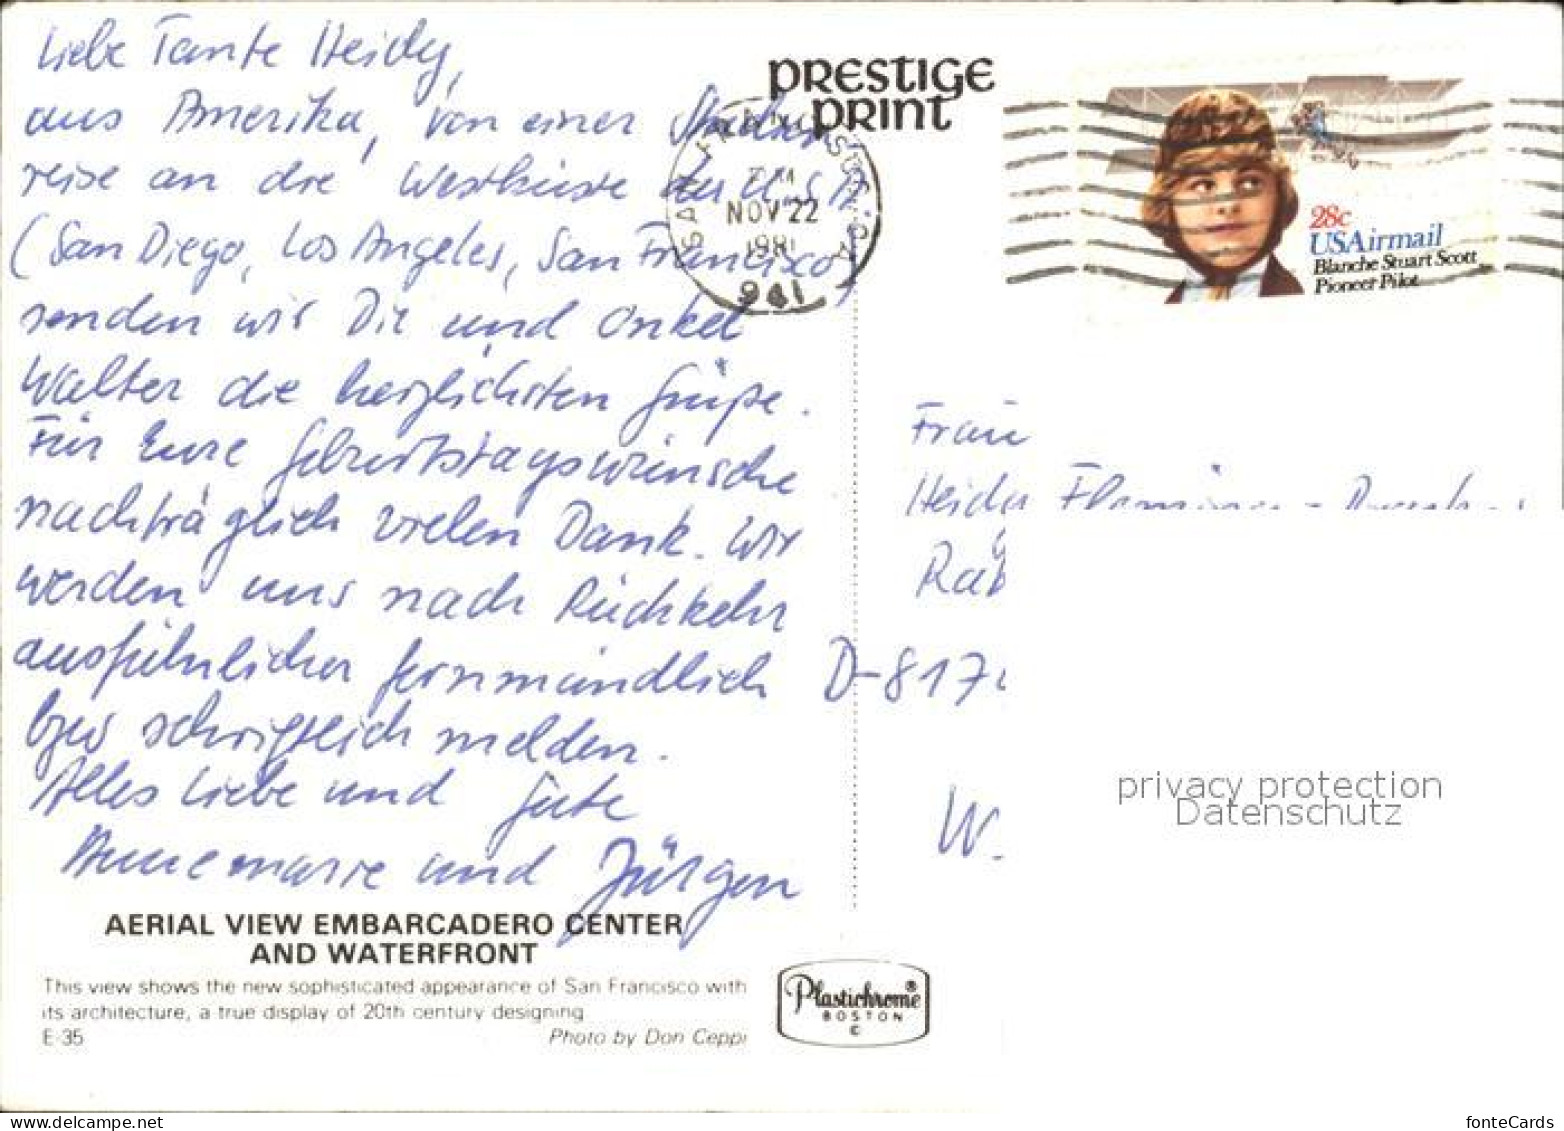 Liebe Tante Heidy,
aus Amerika, von einer Studien
reise an die Westküste der USA
(San Diego, Los Angeles, San Francisco)
senden wir Dir und Onkel
Walter die herzlichsten Grüße.
Für Eure Geburtstagswünsche
nachträglich vielen Dank. Wir
werden uns nach Rückkehr
ausführlicher fernmündlich
bzw schriftlich melden.
Alles Liebe und Gute
Annemarie und Jürgen
AERIAL VIEW EMBARCADERO CENTER
AND WATERFRONT
This view shows the new sophisticated appearance of San Francisco with
its architecture, a true display of 20th century designing
E-35 Photo by Don Ceppi
PRESTIGE
PRINT
SAN FRANCISCO, CA
NOV 22
1981
941
28c
USAirmail
Blanche Stuart Scott
Pioneer Pilot
Frau
D-817
W.
privacy protection
Datenschutz
Plastichrome®
BOSTON
©
fonteCards